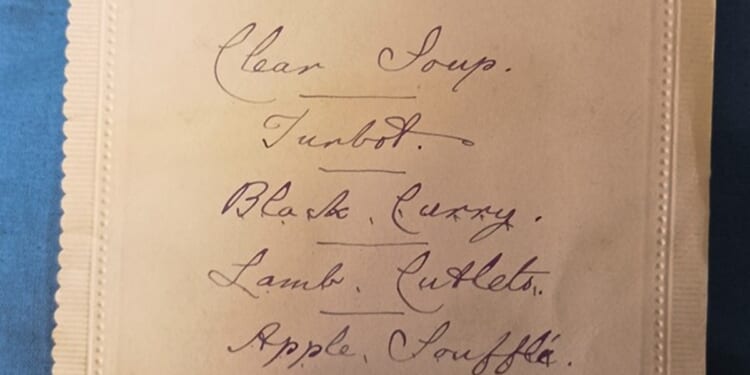 Clear Soup.
Turbot.
Black Curry.
Lamb Cutlets.
Apple Soufflé.